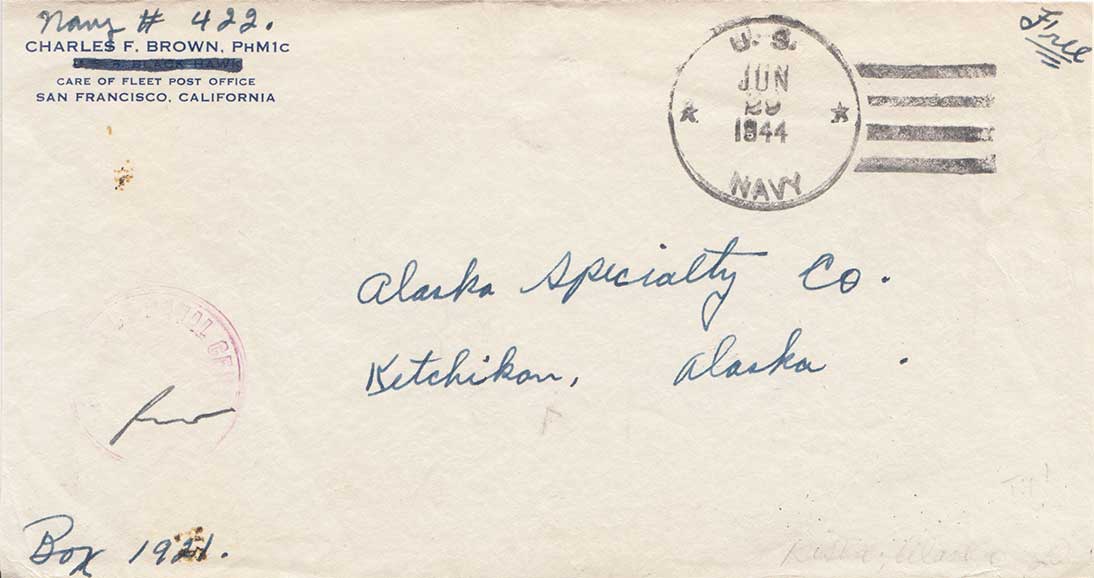 Navy # 422.
CHARLES F. BROWN, PHM1C
U. S. S. BLACK HAWK
CARE OF FLEET POST OFFICE
SAN FRANCISCO, CALIFORNIA
U. S.
JUN
29
1944
NAVY
Free
Alaska Specialty Co.
Ketchikan, Alaska.
Box 1921.